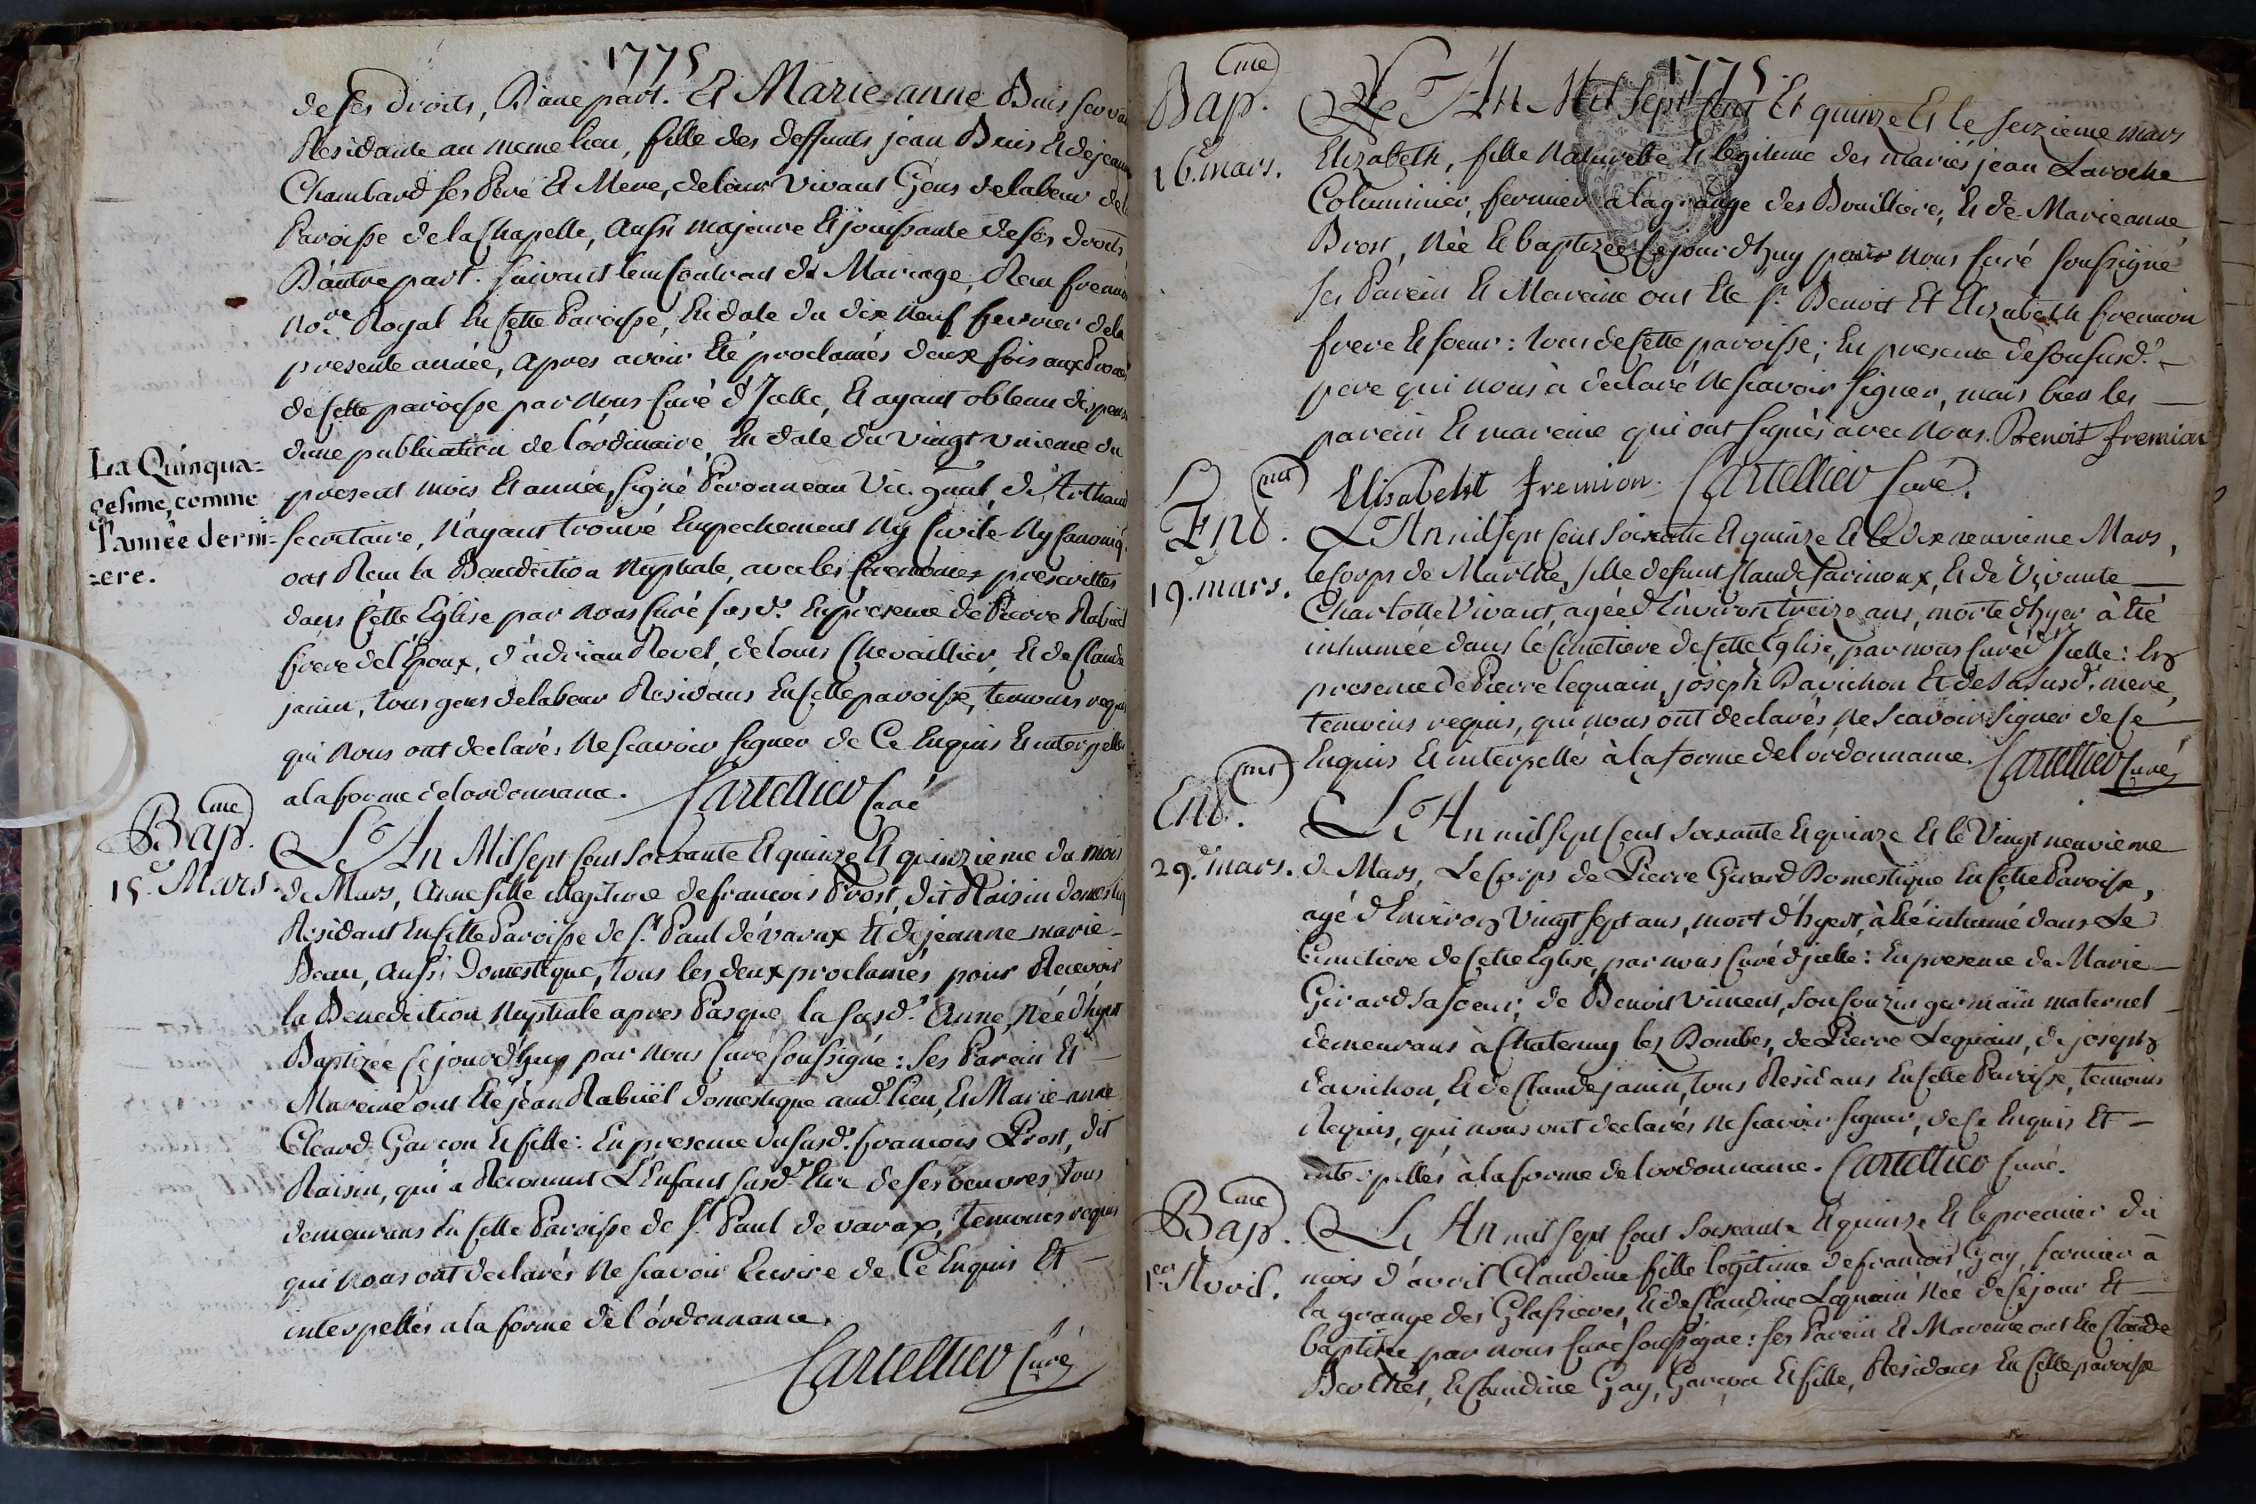 1775
de ses droits, D'une part. Et Marie-anne Buis
Residante au meme lieu, fille des deffunts jean Buis et de jeanne
Chambard ses Pere Et Mere, de leur Vivant Gens de labeur de la
Paroisse de la Chapelle, aussi majeure et jouissante de ses droits
D'autre part. suivant leur Contract de Mariage, Reçu
No.re Royal En cette Paroisse, En date du dix neuf fevrier de la
presente année, apres avoir Eté proclamés deux fois
de cette paroisse par Nous Curé d'Icelle, Et ayant obtenu dispense
d'une publication de l'ordinaire, En date du Vingt Unieme du
present mois Et année, signé Peronneau Vic. gnal,
secretaire, N'ayant trouvé Empechement Ny Civile Ny Canoniq
ont Reçu la Benediction Nuptiale, avec les Ceremonies prescrittes
dans Cette Eglise par Nous Curé susd. En presence de Pierre
frere de l'Epoux, d'adrian Revel, de Louis Chevaillier, Et de Claude
janin, tous gens de labeur Residans En cette paroisse, temoins requis
qui Nous ont declarés Ne scavoir signer de Ce Enquis Et interpellés
a la forme de l'ordonnance. Cartellier Curé
La Quinqua=
gesime, comme
l'année derni=
=ere.
Bap.me
15.e Mars.
L'An Mil sept Cent Soixante Et quinze Et quinzieme du mois
de Mars, Anne fille illegitime de francois Prost, dit Raisin domestiq
Residant En cette Paroisse de S.t Paul de varax Et de jeanne marie
Beau, aussi Domestique, tous les deux proclamés pour Recevoir
la Benediction Nuptiale apres Pasque, la susd.e Anne, Née d'hyer
Baptizée Ce jourd'huy par Nous Curé soussigné : ses Parein Et
Mareine ont Eté jean Rabuel domestique aud. lieu, Et Marie-anne
Cleard Garcon Et fille : En presence du susd. francois Prost, dit
Raisin, qui a Reconnut L'Enfant susd. Etre de ses oeuvres, tous
demeurans En cette Paroisse de S.t Paul de varax, Temoins requis
qui Nous ont declarés Ne scavoir Ecrire de Ce Enquis Et
interpellés a la forme de l'ordonnance.
Cartellier Curé
1775
Bap.me
16.e mars.
L'An Mil Sept Cent Et quinze Et le seizieme mars
Elizabeth, fille Naturelle Et legitime des mariés jean Laroche
fermier a la grange des Et de Marie anne
Brost, Née Et baptizée Ce jour d'huy par Nous Curé soussigné
ses Parein Et Mareine ont Ete S.r Benoit Et Elizabeth fremion
frere Et soeur : tous de Cette paroisse ; En presence de son susd.
pere qui nous à declaré Ne scavoir signer, mais bien les
parein Et mareine qui ont signés avec Nous. Benoit fremion
Elisabeht fremion. Cartellier Curé.
Ent.mt
19.e mars.
L'An mil sept Cent Soixante Et quinze Et le dix neuvieme Mars,
le Corps de Marthe, fille defunt Claude Et de Vivante
Charlotte Vivant, agée d'Environ treize ans, morte d'hyer à Eté
inhumée dans le Cimetiere de Cette Eglise, par nous Curé d'Icelle : En
presence de Pierre lequain, joseph Davichon Et de sa susd. mere,
temoins requis, qui nous ont declarés Ne scavoir signer de Ce
Enquis Et interpellés à la forme de l'ordonnance. Cartellier Curé
Ent.mt
29.e mars.
L'An mil sept Cent Soixante Et quinze Et le Vingt neuvieme
de Mars, Le Corps de Pierre Girard Domestique En Cette Paroisse,
agé d'Environ Vingt sept ans, mort d'hyer, à Eté inhumé dans Le
Cimetiere de Cette Eglise, par nous Curé d'jcelle : En presence de Marie
Girard sa soeur, de Benoit Viment, son Couzin germain maternel
demeurans à Chatenay les Dombes, de Pierre Lequain, de joseph
davichon, Et de Claude janin, tous Residans En Cette Paroisse, temoins
Requis, qui nous ont declarés Ne scavoir signer, de Ce Enquis Et
interpellés à la forme de l'ordonnance. Cartellier Curé.
Bap.me
1.er Avril.
L'An mil sept Cent Soixante Et quinze Et le premier du
mois d'avril Claudine fille legitime de francois Gay, fermier à
la grange des Glassieres, Et de Claudine Lequain Née de Ce jour Et
baptisée par nous Curé soussigné : ses Parein Et Mareine ont Ete Claude
Berthet, Et Claudine Gay, Garcon Et fille, Residans En Cette paroisse